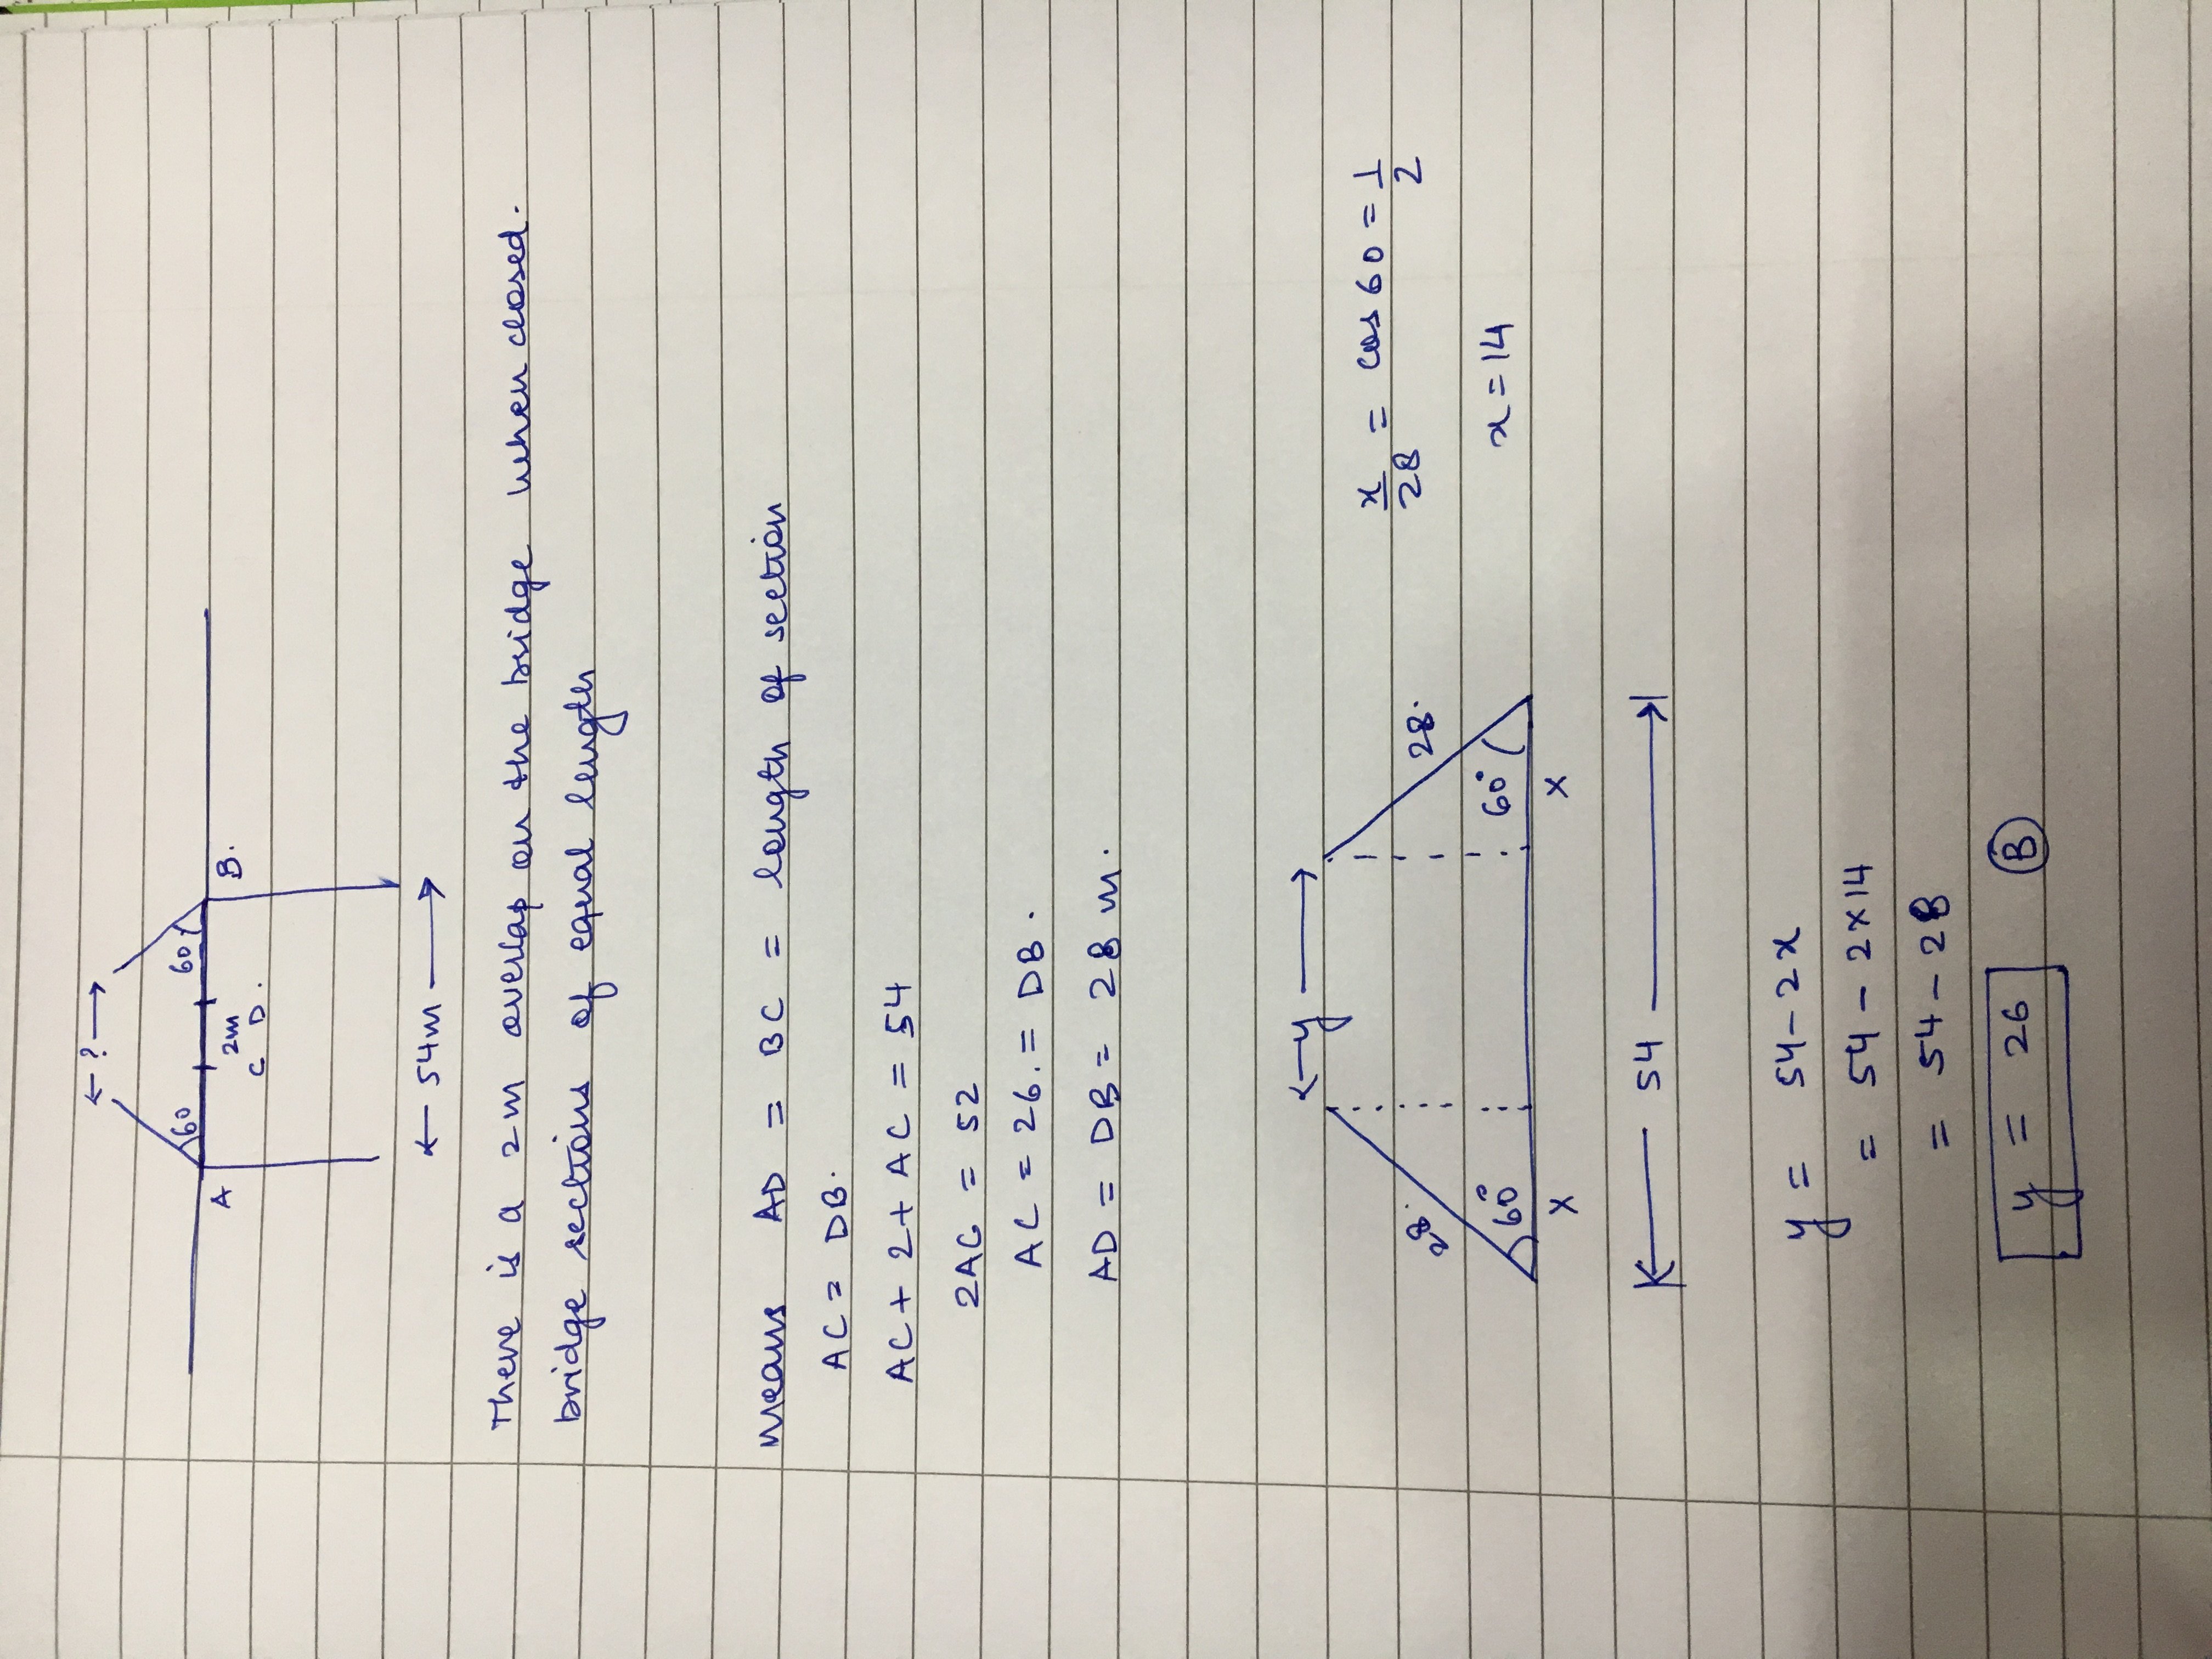 ← ? →
60 60
A 2m B.
C D.
← 54m →
There is a 2m overlap on the bridge when closed.
bridge sections of equal length
means AD = BC = length of section
AC = DB.
AC + 2 + AC = 54
2AC = 52
AC = 26. = DB.
AD = DB = 28 m.
← y →
28. 28.
60° 60°
x x
x/28 = cos 60 = 1/2
x = 14
← 54 →
y = 54 - 2x
= 54 - 2×14
= 54 - 28
y = 26 B